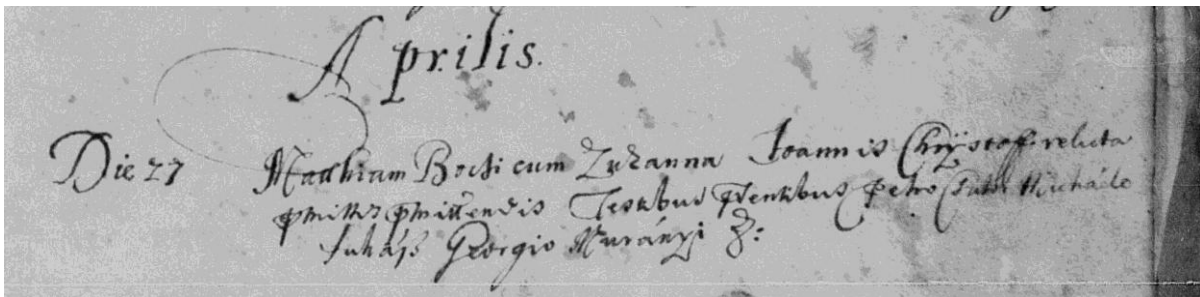 Aprilis.
Die 27 Mathiam Bocsi cum Zuzanna Joannis Chrÿstoff relicta
pmittendis Testibus Petro Michaële
Juhász Georgio Murányi &: